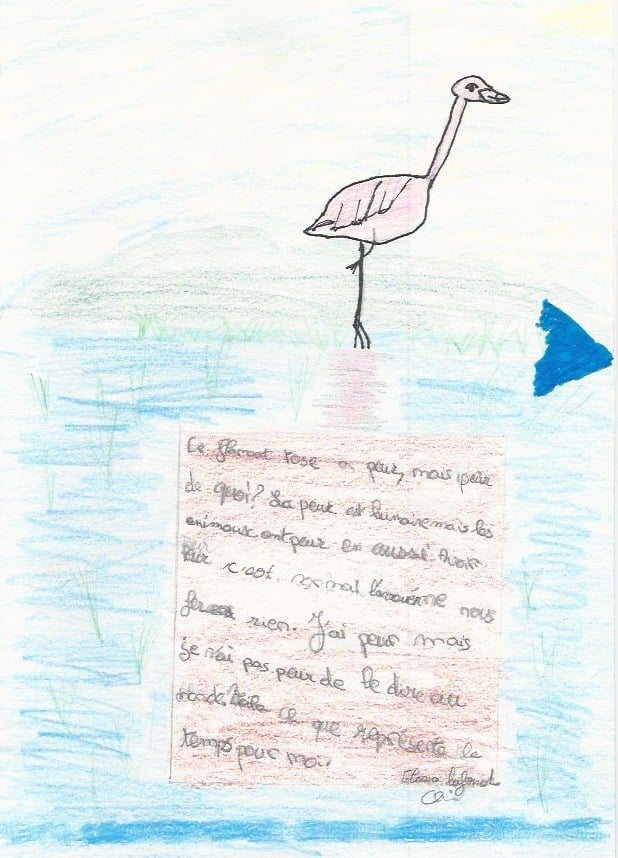 Ce flamant rose a peur, mais peur
de quoi? La peur est humaine mais les
animaux ont peur eux aussi. Avoir
peur c'est normal nous
rien. J'ai peur mais
je n'ai pas peur de le dire au
monde. Voila ce que représente le
temps pour moi.